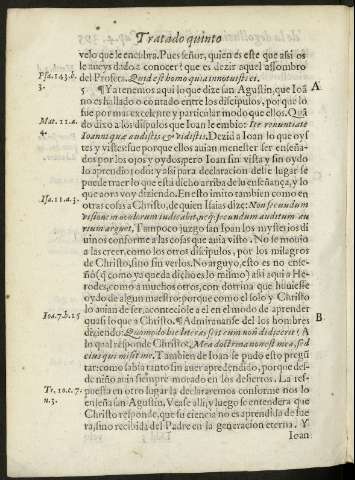 Tratado quinto
velo que le encubra. Pues señor, quien es este que assi os
le aueys dado a conocer? que es dezir aquel assombro
Psa. 143. b. del Profeta. Quid est homo quia innotuisti ei.
3. 5 ¶ Ya tenemos aqui lo que dize san Agustin, que Ioã A
no es hallado o contado entre los discipulos, por que lo
fue por mas excelente y particular modo que ellos. Quã
Mat. 11. a. do dixo a los discipulos que Ioan le embio: Ite renuntiate
4. Ioanni quæ audistis & vidistis. Dezid a Ioan lo que oys-
tes y vistes: fue porque ellos auian menester ser enseña-
dos por los ojos y oydos, pero Ioan sin vista y sin oydo
lo aprendio; todo: y assi para declaracion deste lugar se
puede traer lo que està dicho arriba de su enseñança, y lo
que aora voy diziendo. En esto imito tambien como en
Isa. 11. a. 3. otras cosas a Christo, de quien Isaias dize: Non secundum
visionem oculorum iudicabit, neq; secundum auditum au-
rium arguet. Tampoco juzgo san Ioan los mysterios di
uinos conforme a las cosas que auia visto. No se mouio
a las creer, como los otros discipulos, por los milagros
de Christo, sino sin verlos. No arguyo, esto es no ense-
ñò (q̃ como ya queda dicho es lo mismo) assi aqui a He-
rodes, como a muchos otros, con dotrina que huuiesse
oydo de algun maestro: porque como el solo y Christo
lo auian de ser, aconteciole a el en el modo de aprender
Ioa. 7. b. 15 quasi lo que a Christo. ¶ Admirauanse del los hombres B
diciendo: Quomodo hic literas scit cum non didicerit? A
lo qual responde Christo, Mea doctrina non est mea, sed
eius qui misit me. Tambien de Ioan se pudo esto pregũ
tar: como sabia tanto sin auer aprẽdido, porque des-
de niño auia siempre morado en los desiertos. La res-
Tr. 10. c. 7. puesta en otro lugar la declararemos conforme nos lo
n. 3. enseña san Agustin. Vease alli, y luego se entendera que
Christo responde, que su ciencia no es aprendida de fue
ra, sino recibida del Padre en la generacion eterna. Y
Ioan